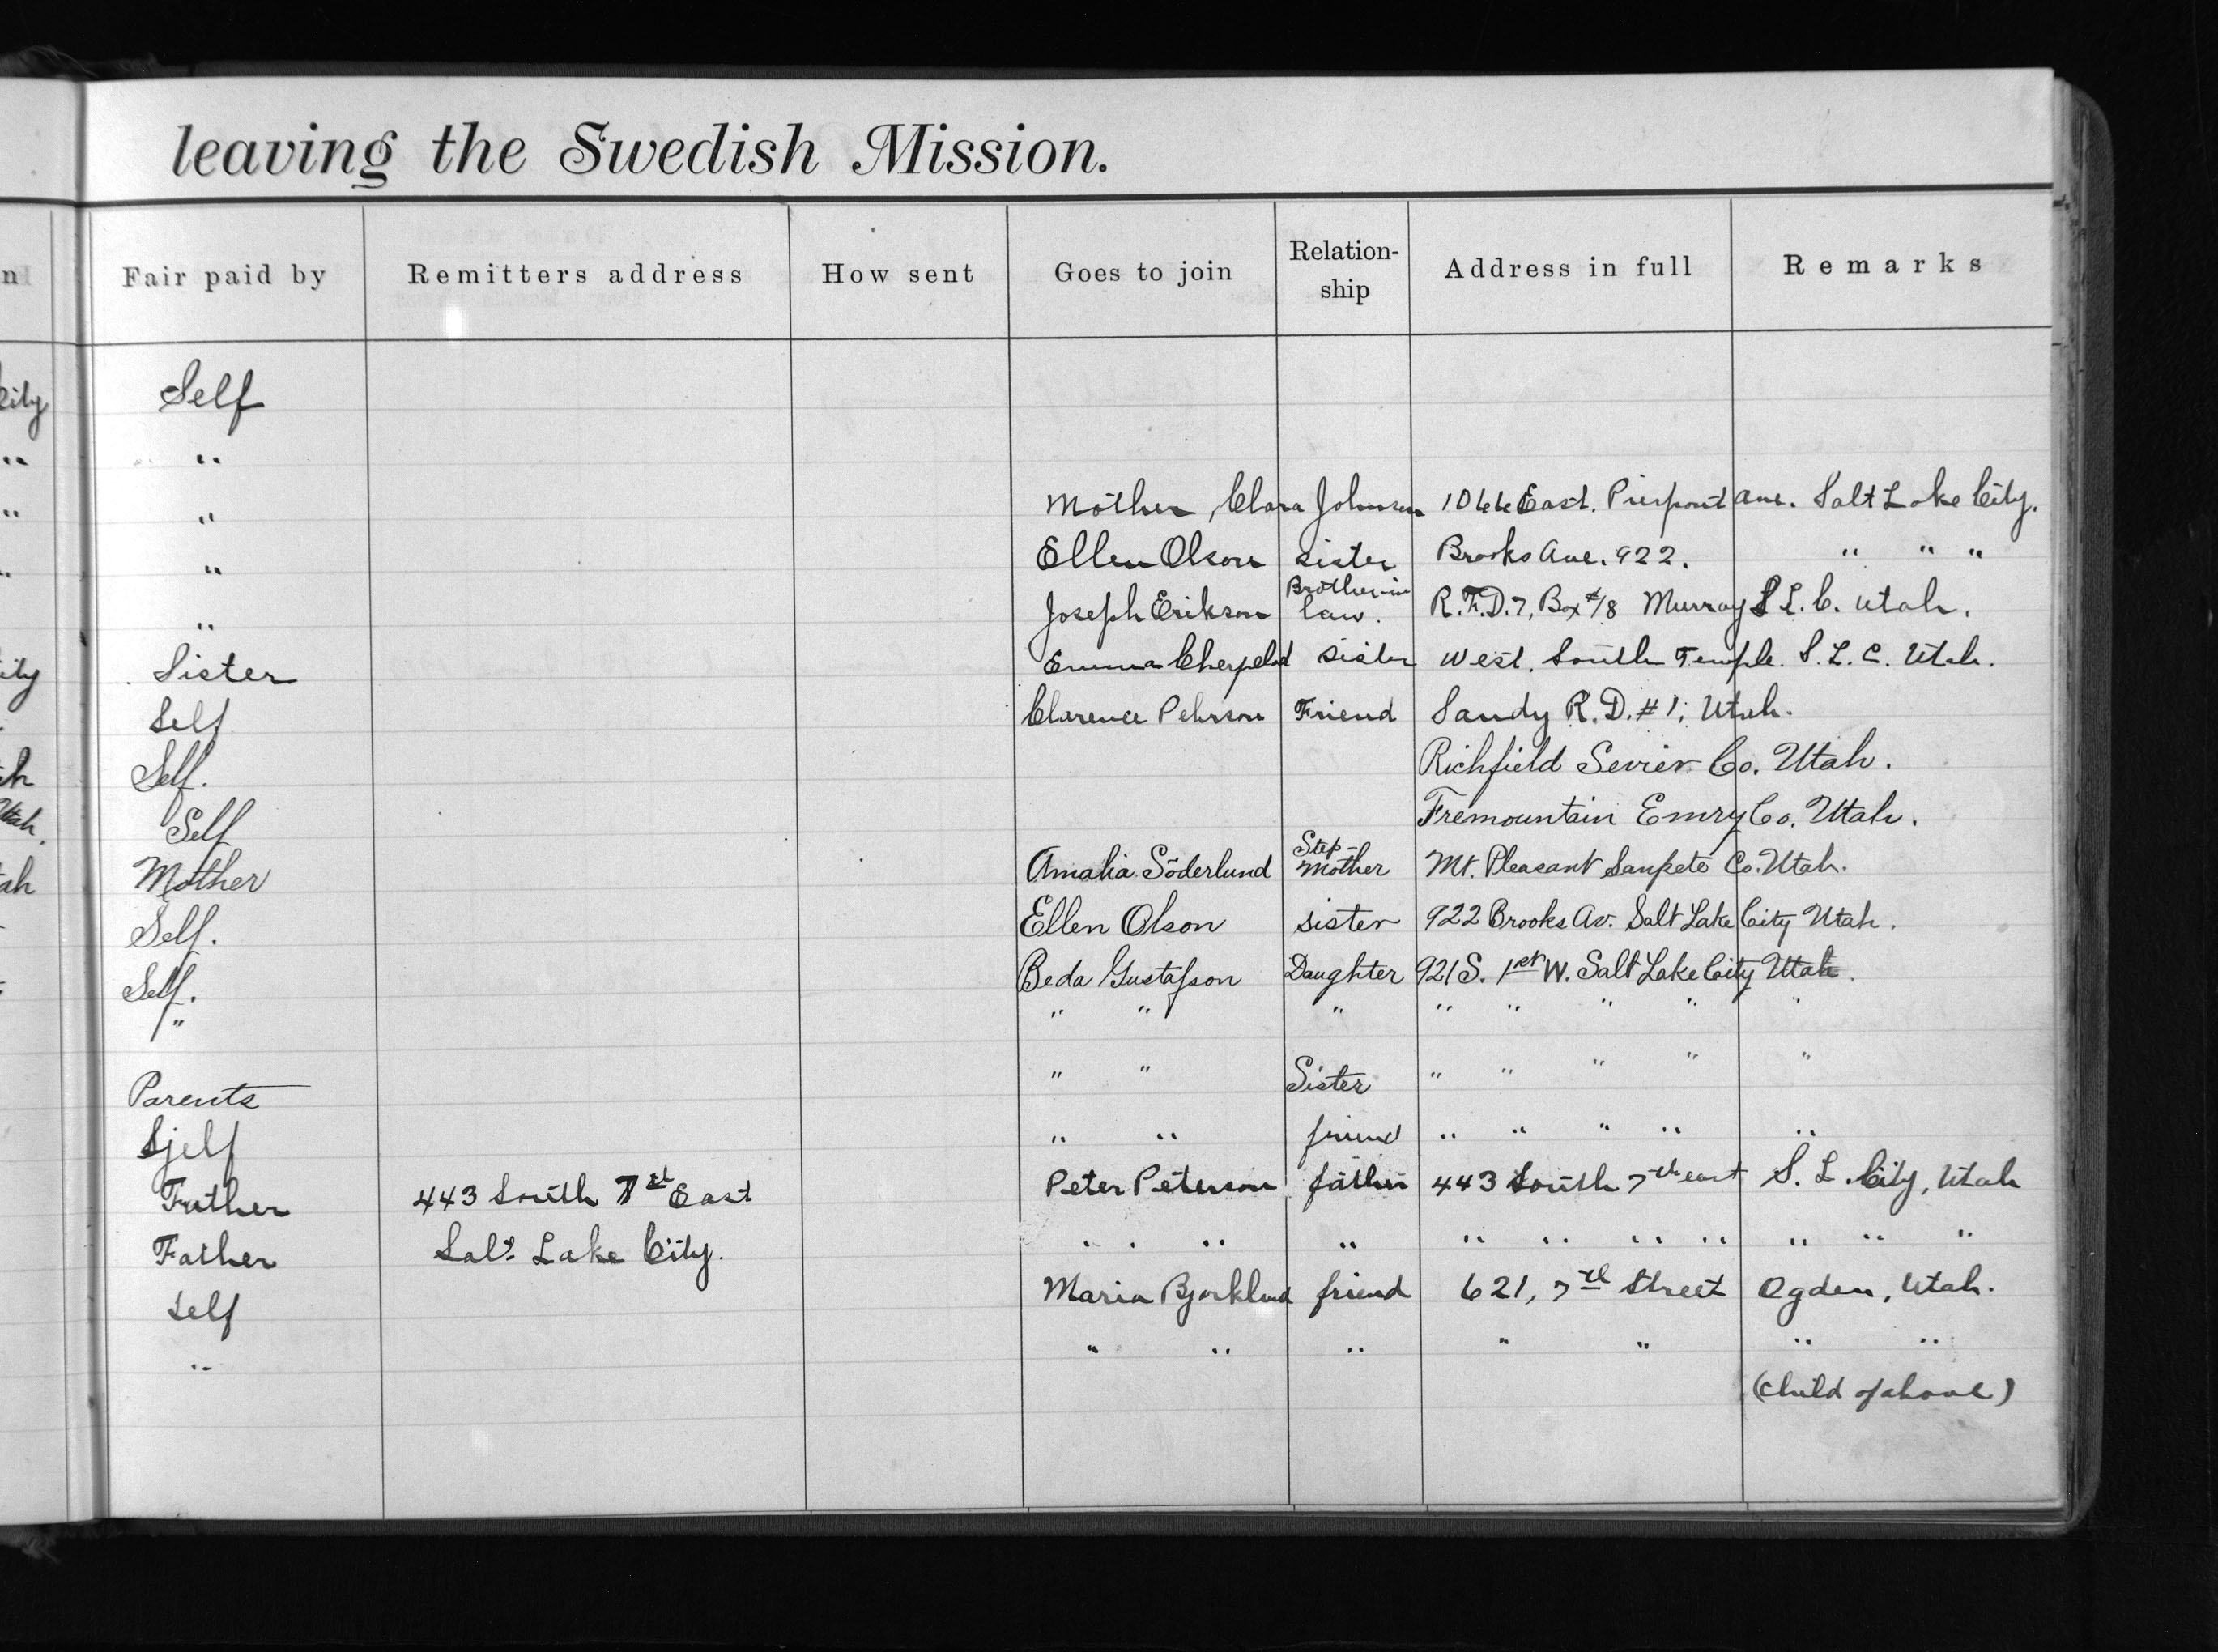 leaving the Swedish Mission.
n Fair paid by Remitters address How sent Goes to join Relation-ship Address in full Remarks
City Self
" "
" " Mother, Clara Johnson 1044 East. Pierpont Ave. Salt Lake City.
" " Ellen Olson sister Brooks Ave. 922. " " "
" Joseph Erikson Brother-in law. R.F.D. 7, Box #18 Murray S.L.C. Utah.
City Sister Emma sister West. South Temple. S.L.C. Utah.
Self Clarence Pehrson Friend Sandy R.D. #1, Utah.
ah Self. Richfield Sevier Co. Utah.
Utah. Self Fremountain Emry Co. Utah.
ah Mother Amalia Söderlund Step-mother Mt. Pleasant Sanpete Co. Utah.
Self. Ellen Olson sister 922 Brooks Av. Salt Lake City Utah.
Self. Beda Gustafson Daughter 921 S. 1st W. Salt Lake City Utah.
" " " " " " " " "
Parents " " Sister " " " " "
Sjelf " " friend " " " " "
Father 443 South 7th East Peter Peterson father 443 South 7th east S. L. City, Utah
Father Salt Lake City. " " " " " " " " " " "
self Maria Bjorklund friend 621, 7th Street Ogden, Utah.
" " " " " " " "
(child of above)